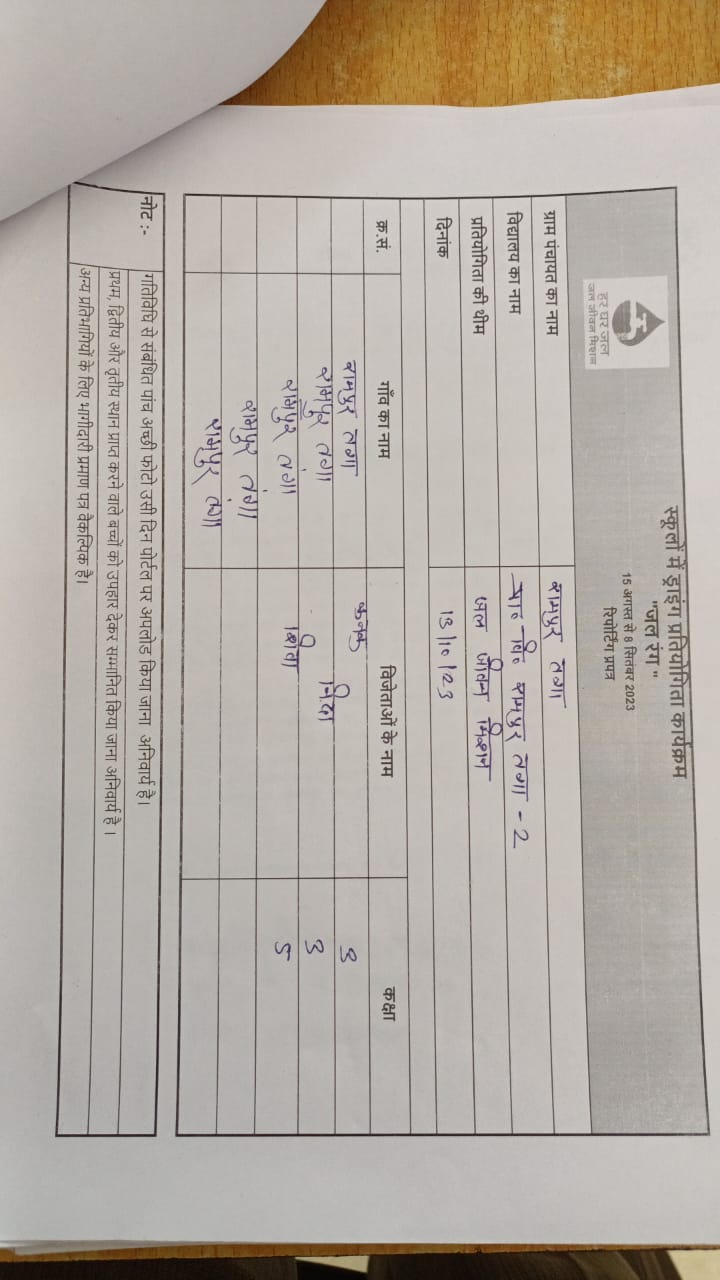 हर घर जल
जल जीवन मिशन
स्कूलों में ड्राइंग प्रतियोगिता कार्यक्रम
"जल रंग"
15 अगस्त से 8 सितंबर 2023
रिपोर्टिंग प्रपत्र
ग्राम पंचायत का नाम रामपुर तगा
विद्यालय का नाम प्रा० वि० रामपुर तगा - 2
प्रतियोगिता की थीम जल जीवन मिशन
दिनांक 13/10/23
क्र.सं. गाँव का नाम विजेताओं के नाम कक्षा
रामपुर तगा 3
रामपुर तगा 3
रामपुर तगा शिवा 5
रामपुर तगा
रामपुर तगा
नोट :- गतिविधि से संबंधित पांच अच्छी फोटो उसी दिन पोर्टल पर अपलोड किया जाना अनिवार्य है।
प्रथम, द्वितीय और तृतीय स्थान प्राप्त करने वाले बच्चों को उपहार देकर सम्मानित किया जाना अनिवार्य है।
अन्य प्रतिभागियों के लिए भागीदारी प्रमाण पत्र वैकल्पिक है।